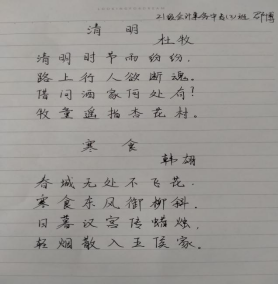 21级会计事务中高(1)班 邵博
清明
杜牧
清明时节雨纷纷,
路上行人欲断魂。
借问酒家何处有?
牧童遥指杏花村。
寒食
韩翃
春城无处不飞花,
寒食东风御柳斜。
日暮汉宫传蜡烛,
轻烟散入五侯家。